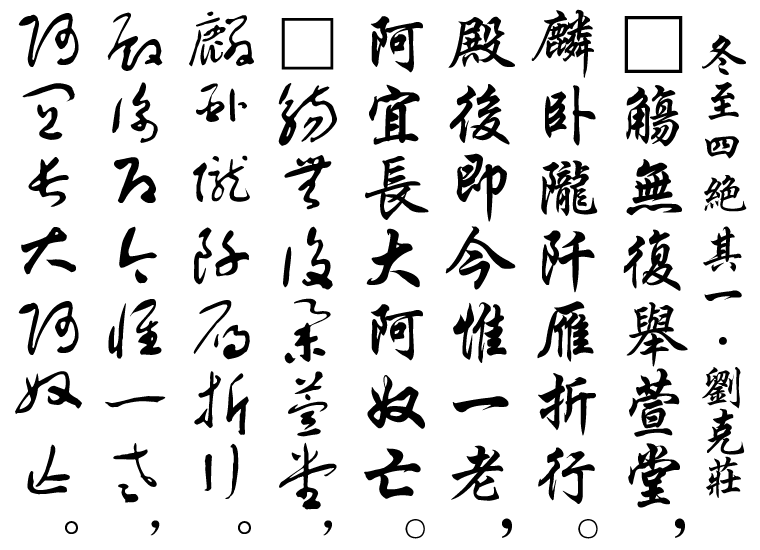 冬至四絕 其一・劉克莊
□觴無復舉萱堂，
麟卧隴阡雁折行。
殿後即今惟一老，
阿宜長大阿奴亡。
□觴無復舉萱堂，
麟卧隴阡雁折行。
殿後即今惟一老，
阿宜長大阿奴亡。